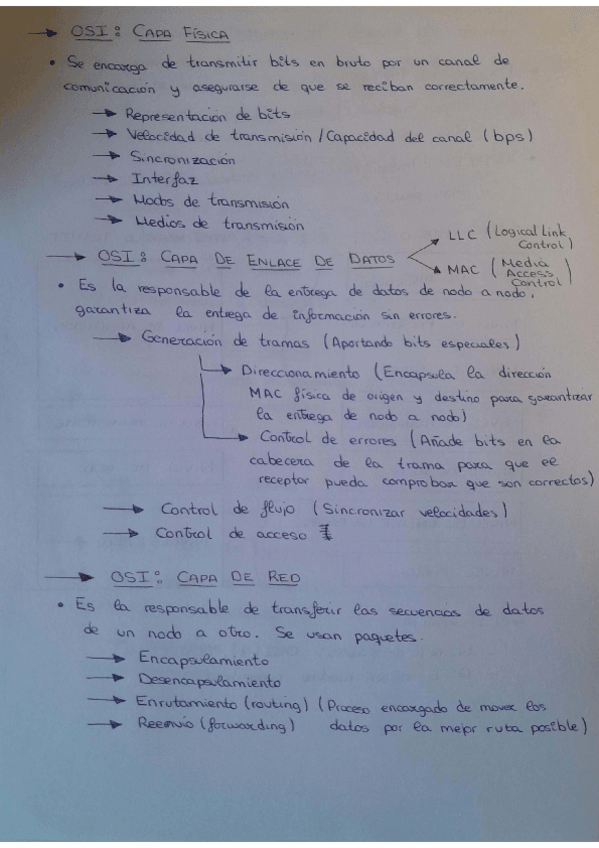 → OSI: CAPA FÍSICA
• Se encarga de transmitir bits en bruto por un canal de
comunicación y asegurarse de que se reciban correctamente.
→ Representación de bits
→ Velocidad de transmisión / Capacidad del canal (bps)
→ Sincronización
→ Interfaz
→ Modos de transmisión
→ Medios de transmisión
→ OSI: CAPA DE ENLACE DE DATOS
→ LLC (Logical Link
Control)
→ MAC (Media
Access
Control)
• Es la responsable de la entrega de datos de nodo a nodo,
garantiza la entrega de información sin errores.
→ Generación de tramas (Aportando bits especiales)
→ Direccionamiento (Encapsula la dirección
MAC física de origen y destino para garantizar
la entrega de nodo a nodo)
→ Control de errores (Añade bits en la
cabecera de la trama para que el
receptor pueda comprobar que son correctos)
→ Control de flujo (Sincronizar velocidades)
→ Control de acceso
→ OSI: CAPA DE RED
• Es la responsable de transferir las secuencias de datos
de un nodo a otro. Se usan paquetes.
→ Encapsulamiento
→ Desencapsulamiento
→ Enrutamiento (routing) (Proceso encargado de mover los
→ Reenvío (forwarding) datos por la mejor ruta posible)